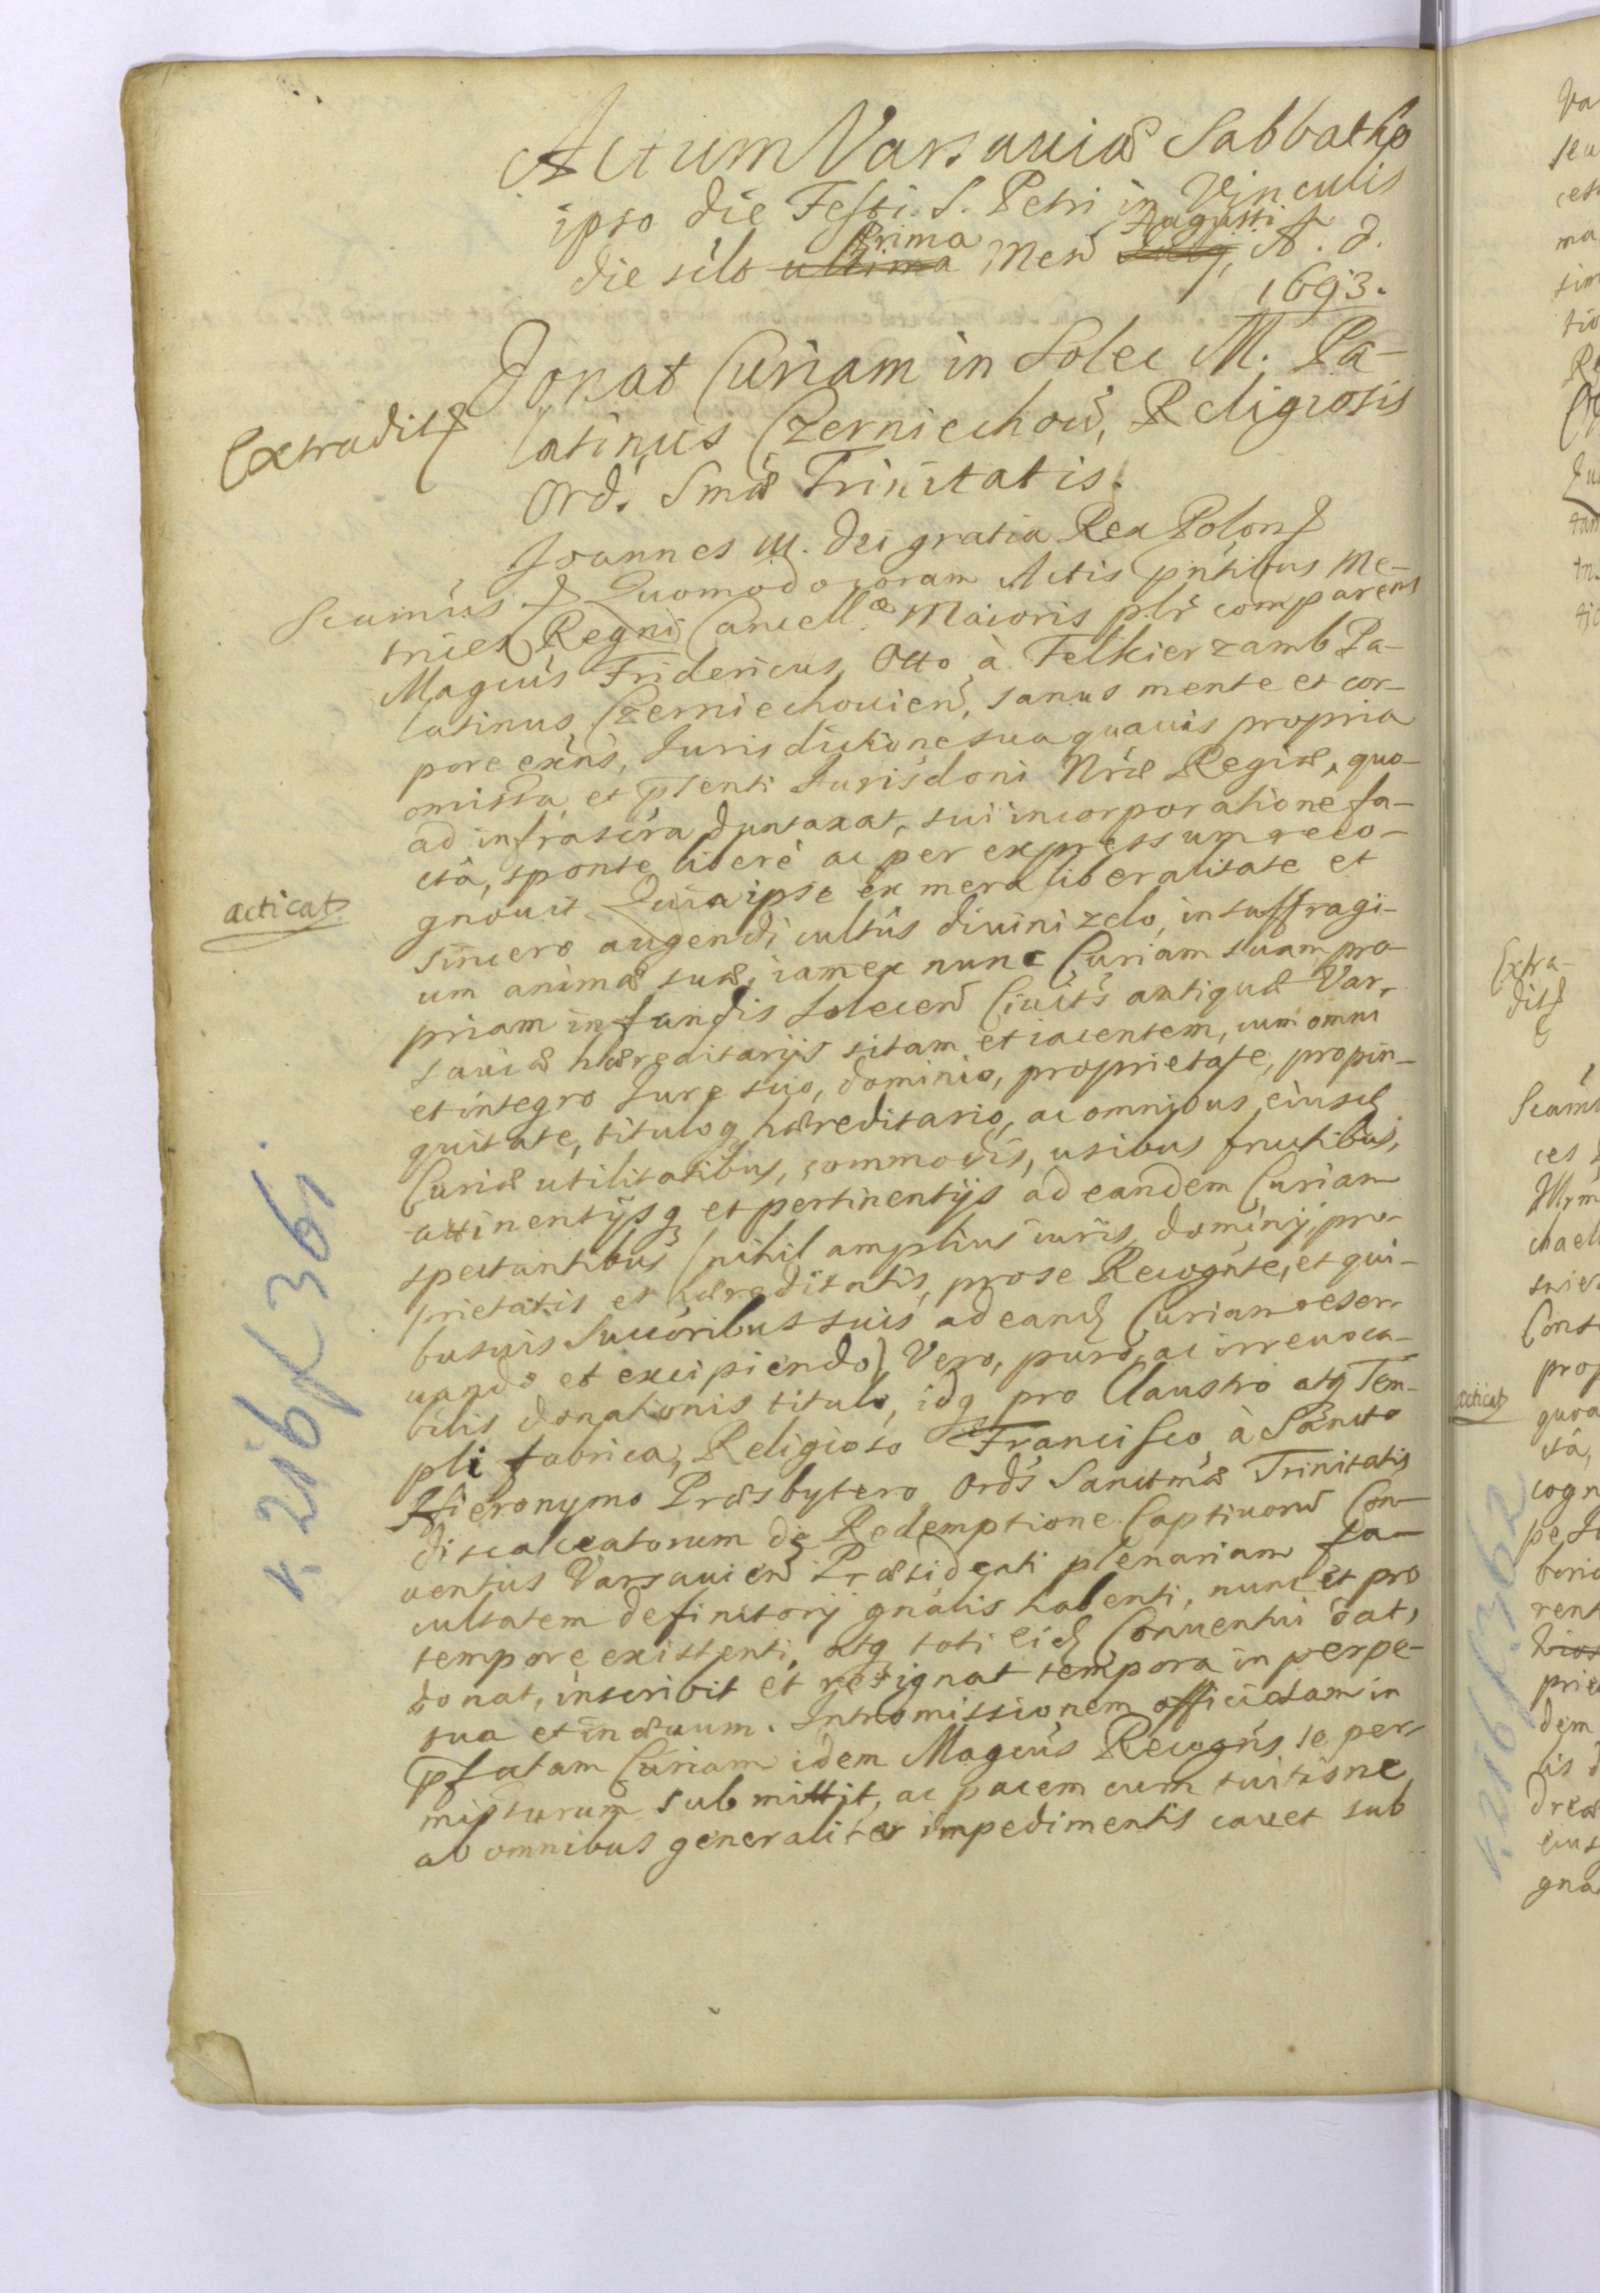 Actum Varsauiæ Sabbatho
ipso die Festi. S. Petri in Vinculis
die scilt ultima Prima Mens July Augusti A. d.
1693.
Donat Curiam in Solec M. Pa-
latinus Czerniechow, Religiosis
Ord. Smæ Trinitatis.
Extradit
Joannes III. Dei gratia Rex Polon
Scamus Quomodo coram Actis pntibus Me-
trices Regni Cancellæ Maioris plr comparens
Magcus Fridericus Otto à Felkierzamb Pa-
latinus Czerniechouien, sanus mente et cor-
pore exns, Jurisdictione sua quauis propria
omissa, et pnti Jurisdoni Nræ Regiæ, quo-
ad infrascra duntaxat, sui incorporatione fa-
ctâ, sponte liberè ac per expressum reco-
gnouit. Quia ipse ex mera liberalitate et
acticat
sincero augendi cultûs diuini zelo, in suffragi-
um animæ suæ, iam ex nunc Curiam suam pro-
priam in fundis Solecen Ciuits antiquæ Var-
sauiæ hæreditarijs sitam et iacentem, cum omni
et integro Jure suo, dominio, proprietate, propin-
quitate, tituloq hæreditario, ac omnibus eiusd
Curiæ utilitatibus, commodis, usibus fructibus,
attinentijsq et pertinentijs ad eandem Curiam
spectantibus (nihil amplius iuris, dominij, pro-
prietatis et hæreditatis, pro se Recognte, et qui-
busuis Succoribus suis ad eand Curiam reser-
uando et excipiendo) Vero, puro, ac irreuoca-
bilis donationis titulo, idq pro Claustro atq Tem-
pli fabrica, Religioso Francisco à Sancto
Hieronymo Præsbytero Ords Sanctmæ Trinitatis
discalceatorum de Redemptione Captiuoru Con-
uentus Varsauien Præsidenti plenariam fa-
cultatem definitorij gnalis habenti, nunc et pro
tempore existenti, atq toti eid Conuentui dat,
donat, inscribit et resignat tempora in perpe-
tua et in æuum. Intromissionem officiosam in
pfatam Curiam idem Magcus Recogns se per-
missurum submittit, ac pacem cum tuitione
ab omnibus generaliter impedimentis cauet sub
r. 216 f 361
Extra-
dit
acticat
r. 216 f 362